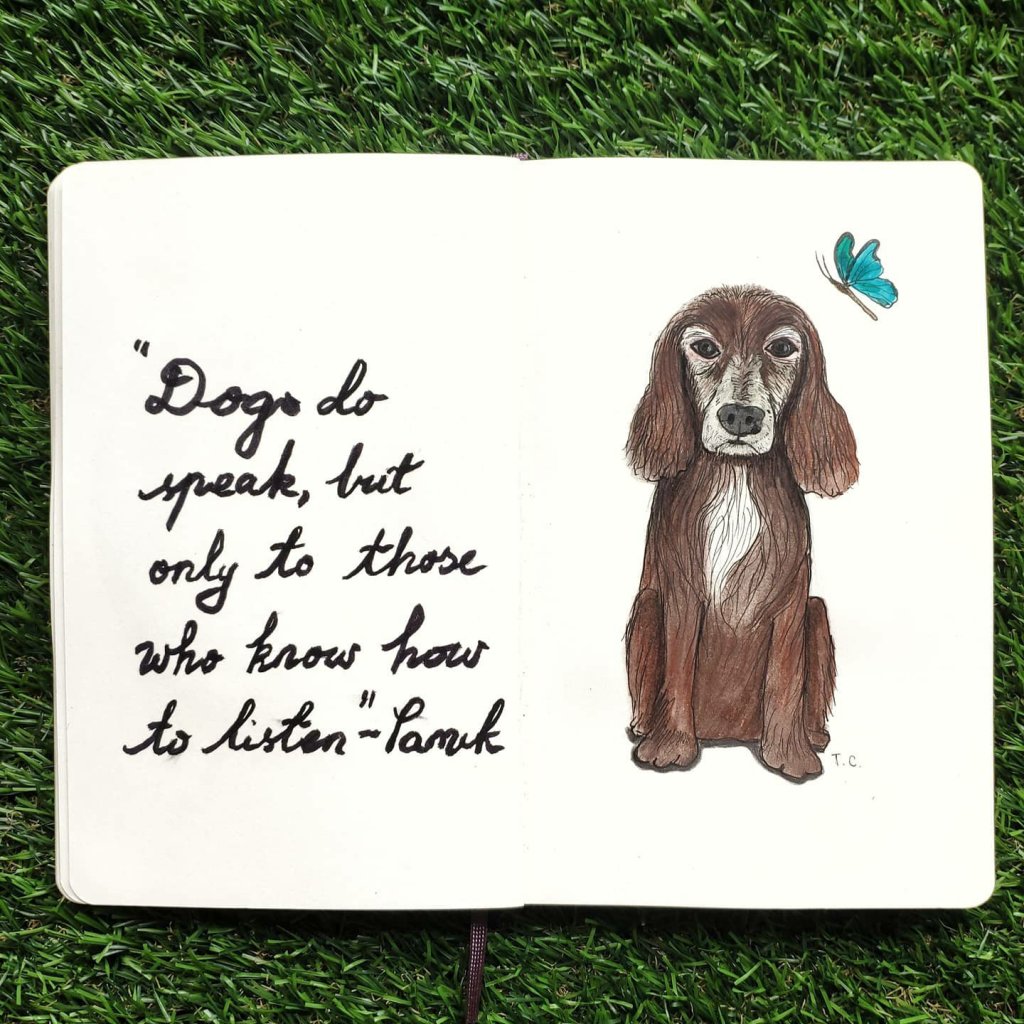 "Dogs do
speak, but
only to those
who know how
to listen" ~ Pamuk
T.C.